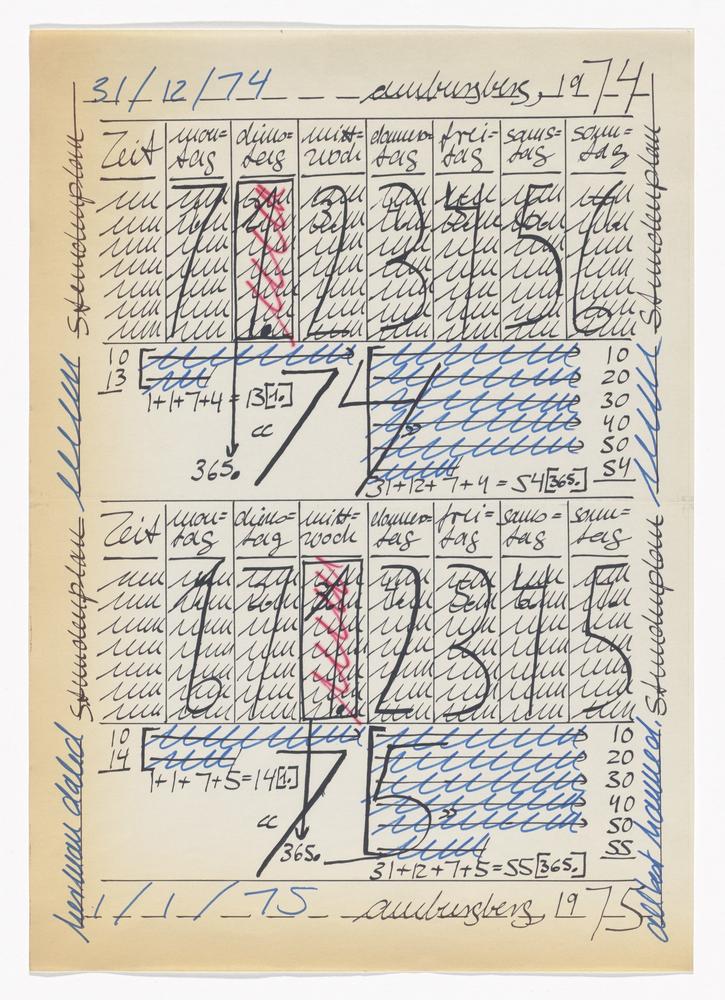 31/12/74 amburgberg, 1974
Stundenplan
Zeit mon=tag diens=tag mitt=woch donners=tag frei=tag sams=tag sonn=tag
7 1. 2 3 4 5 6
Stundenplan
10
13
1+1+7+4=13[1.]
365.
"74"
10
20
30
40
50
54
31+12+7+4=54[365.]
Stundenplan
Zeit mon=tag diens=tag mitt=woch donners=tag frei=tag sams=tag sonn=tag
6 7 1. 2 3 4 5
Stundenplan
10
14
1+1+7+5=14[1.]
365.
"75"
10
20
30
40
50
55
31+12+7+5=55[365.]
1/1/75 amburgberg, 1975